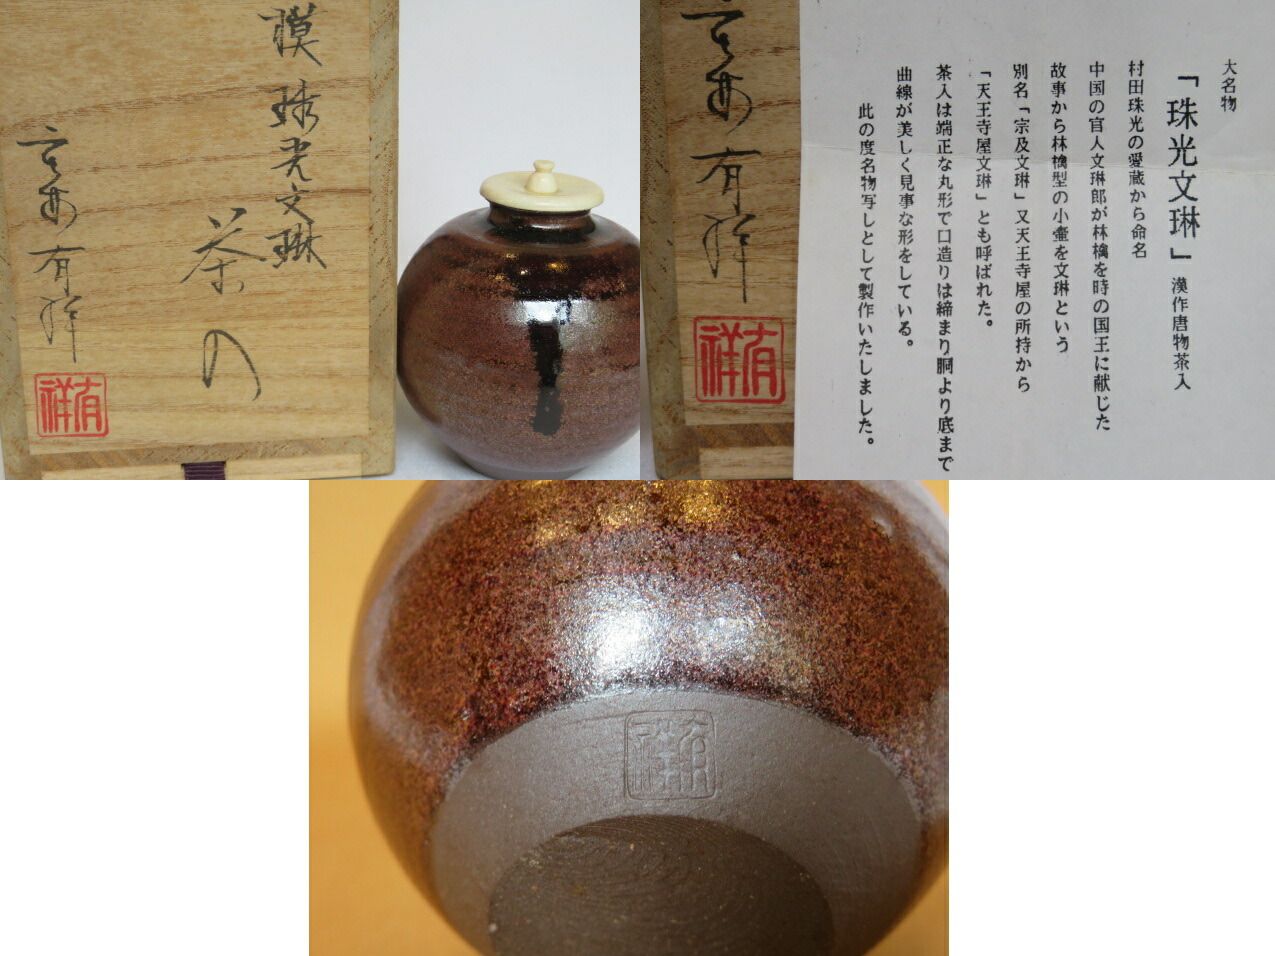 模珠光文琳
茶の
有祥
有祥
有祥
有祥
大名物
「珠光文琳」漢作唐物茶入
村田珠光の愛蔵から命名
中国の官人文琳郎が林檎を時の国王に献じた
故事から林檎型の小壷を文琳という
別名「宗及文琳」又天王寺屋の所持から
「天王寺屋文琳」とも呼ばれた。
茶入は端正な丸形で口造りは締まり胴より底まで
曲線が美しく見事な形をしている。
此の度名物写しとして製作いたしました。
有祥